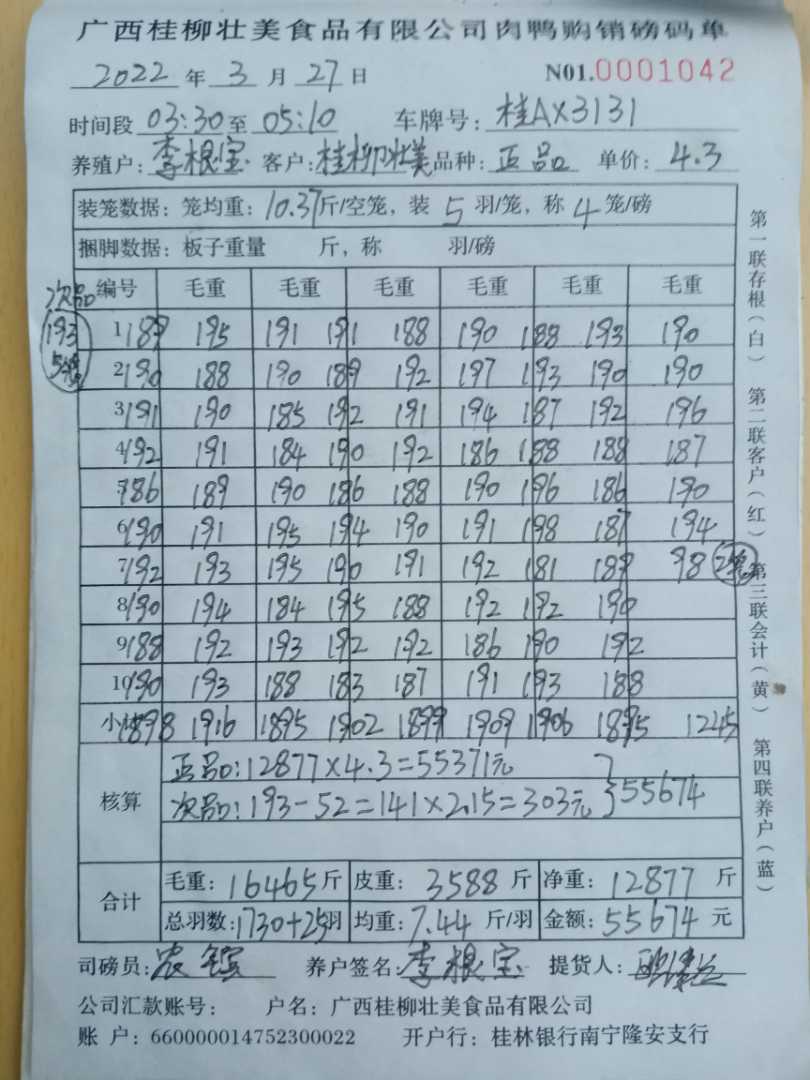 广西桂柳壮美食品有限公司肉鸭购销磅码单
2022 年 3 月 27 日 N01.0001042
时间段 03:30 至 05:10 车牌号: 桂AX3131
养殖户: 李根宝 客户: 桂柳壮美 品种: 正品 单价: 4.3
装笼数据: 笼均重: 10.37斤/空笼, 装 5 羽/笼, 称 4 笼/磅
捆脚数据: 板子重量 斤, 称 羽/磅
次品 编号 毛重 毛重 毛重 毛重 毛重 毛重
193 1 189 195 191 191 188 190 188 193 190
5笼 2 190 188 190 189 192 197 193 190 190
3 191 190 185 192 191 194 187 192 196
4 192 191 184 190 192 186 188 188 187
5 186 189 190 186 188 190 196 186 190
6 190 191 195 194 190 191 198 187 194
7 192 193 195 190 191 192 181 189 98 2笼
8 190 194 184 195 188 192 192 190
9 188 192 193 192 192 186 190 192
10 190 193 188 183 187 191 193 188
小计 1898 1916 1895 1902 1899 1909 1906 1895 1245
核算
正品: 12877×4.3=55371元
次品: 193-52=141×2.15=303元 }55674
合计
毛重: 16465斤 皮重: 3588 斤 净重: 12877 斤
总羽数: 1730+25羽 均重: 7.44 斤/羽 金额: 55674 元
司磅员: 农 养户签名: 李根宝 提货人:
公司汇款账号: 户名: 广西桂柳壮美食品有限公司
账 户: 660000014752300022 开户行: 桂林银行南宁隆安支行
第一联存根(白) 第二联客户(红) 第三联会计(黄) 第四联养户(蓝)